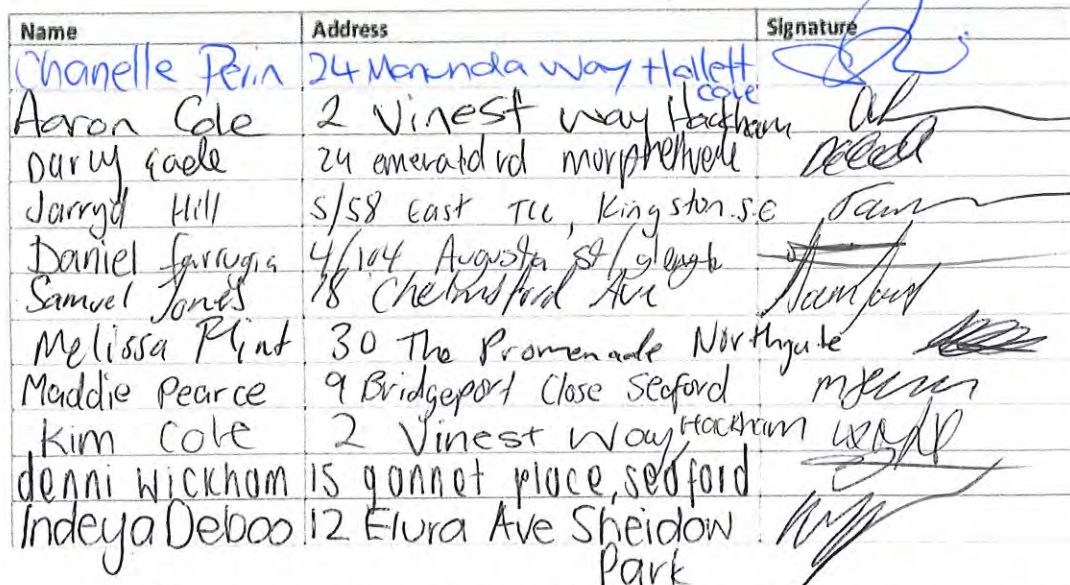 Name Address Signature
Chanelle Perin 24 Manunda Way Hallett
cove
Aaron Cole 2 Vinest way Hackham
Darcy 24 emerald rd morphettvale
Jarryd Hill 5/58 East Tce, Kingston.S.E
Daniel farrugia 4/104 Augusta st/
Samuel Jones 18 Chelmsford Ave
Melissa Plint 30 The Promenade Northgate
Maddie Pearce 9 Bridgeport Close Seaford
Kim Cole 2 Vinest Way, Hackham
denni wickham 15 gannet place, seaford
Indeya Deboo 12 Elura Ave Sheidow
Park